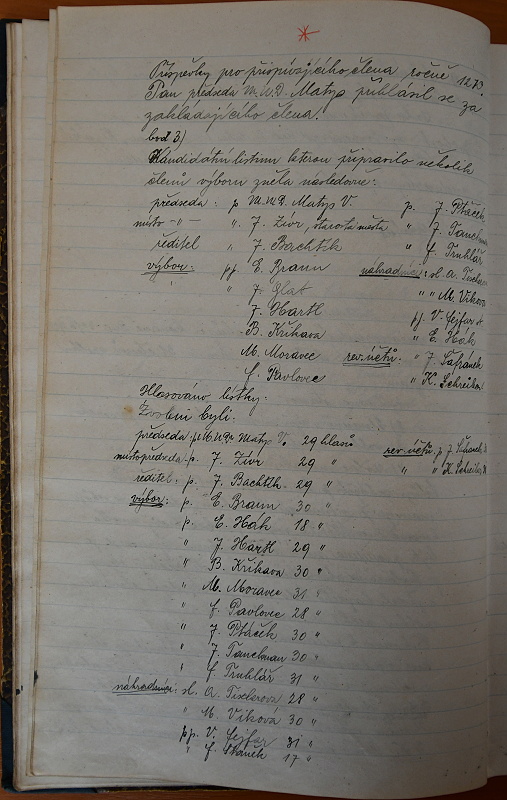 Příspěvky pro přispívajícího člena ročně 12 Kč.
Pan předseda M.U.D. Matys přihlásil se za
zakládajícího člena.
bod 3.)
Kandidátní listinu kterou připravilo několik
členů výboru zněla následovně:
předseda: p M.U.D. Matys V. p. J. Ptáček
místo -"- " J. Zívr, starosta města " J. Tauchman
ředitel " J. Bachtík " f. Truhlář
výbor: pp. E. Braun náhradníci: sl. A. Tischerova
" J. Glat " " M. Víkova
J. Hartl pp. V. Fejfar
B. Křikava " E. Hák
M. Moravec rev. účtů: " J. Šafránek
f. Pavlovec " K. Schreiber
Hlasováno lístky.
Zvoleni byli:
předseda p. M.U.Dr Matys V. 29 hlasů rev. účtů p. J. Šafránek
místopředseda p. J. Zívr 29 " " " K. Schreiber
ředitel: p. J. Bachtík 29 "
výbor: p. E. Braun 30 "
p. E. Hák 18 "
" J. Hartl 29 "
" B. Křikava 30 "
" M. Moravec 31 "
" f. Pavlovec 28 "
" J. Ptáček 30 "
" J. Tauchman 30 "
" f. Truhlář 31 "
náhradníci: sl. A. Tischerova 28 "
" M. Víková 30 "
pp. V. Fejfar 31 "
" f. 17 "